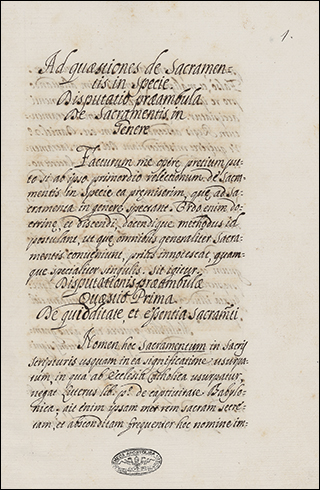 1.
Ad quæstiones de Sacramen-
tis in specie.
Disputatio præambula
De Sacramentis in
Genere
Facturum me operę pretium pu-
to si ab ipso primordio relectionum de Sacra-
mentis in specie ea pręmiserim, quę ad Sa-
cramenta in genere spectant. Ordo enim do-
ctrinę, et discendi, docendique methodus id
postulant, ut quę omnibus generaliter Sacra-
mentis conveniunt, prius innotescat, quam
quę specialiter singulis. sit igitur.
Disputationis præambulæ
Quæstio Prima
De quidditate et essentia Sacramti.
Nomen hoc Sacramentum in Sacris
scripturis usquam in ea significatione usurpa-
tum, in qua ab ecclesia catholica usurpatur,
negat Luterus lib. de captivitate Babylo-
nica, ait enim ipsam rem sacram secre-
tam, et absconditam frequenter hoc nomine im-